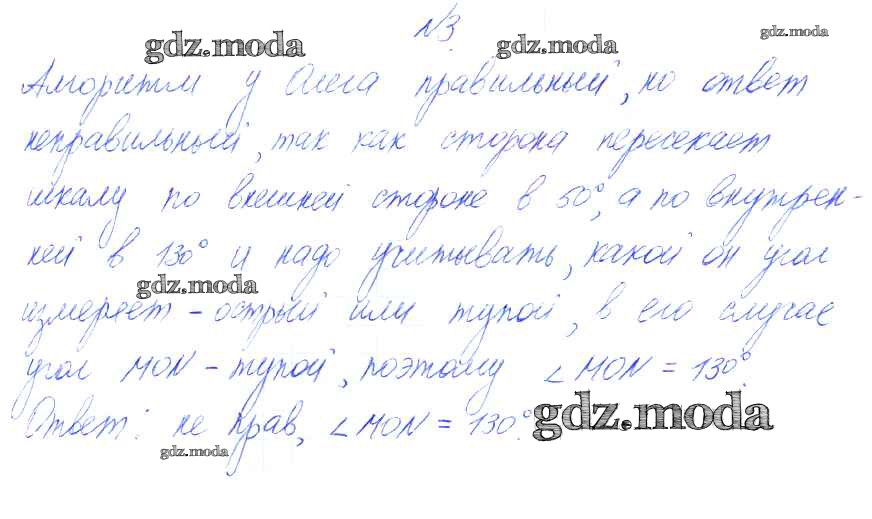 №3.
gdz.moda gdz.moda gdz.moda
Алгоритм у Олега правильный, но ответ
неправильный, так как сторона пересекает
шкалу по внешней стороне в 50°, а по внутрен-
ней в 130° и надо учитывать, какой он угол
gdz.moda
измеряет - острый или тупой, в его случае
угол MON - тупой, поэтому ∠MON = 130°.
Ответ: не прав, ∠MON = 130°. gdz.moda
gdz.moda